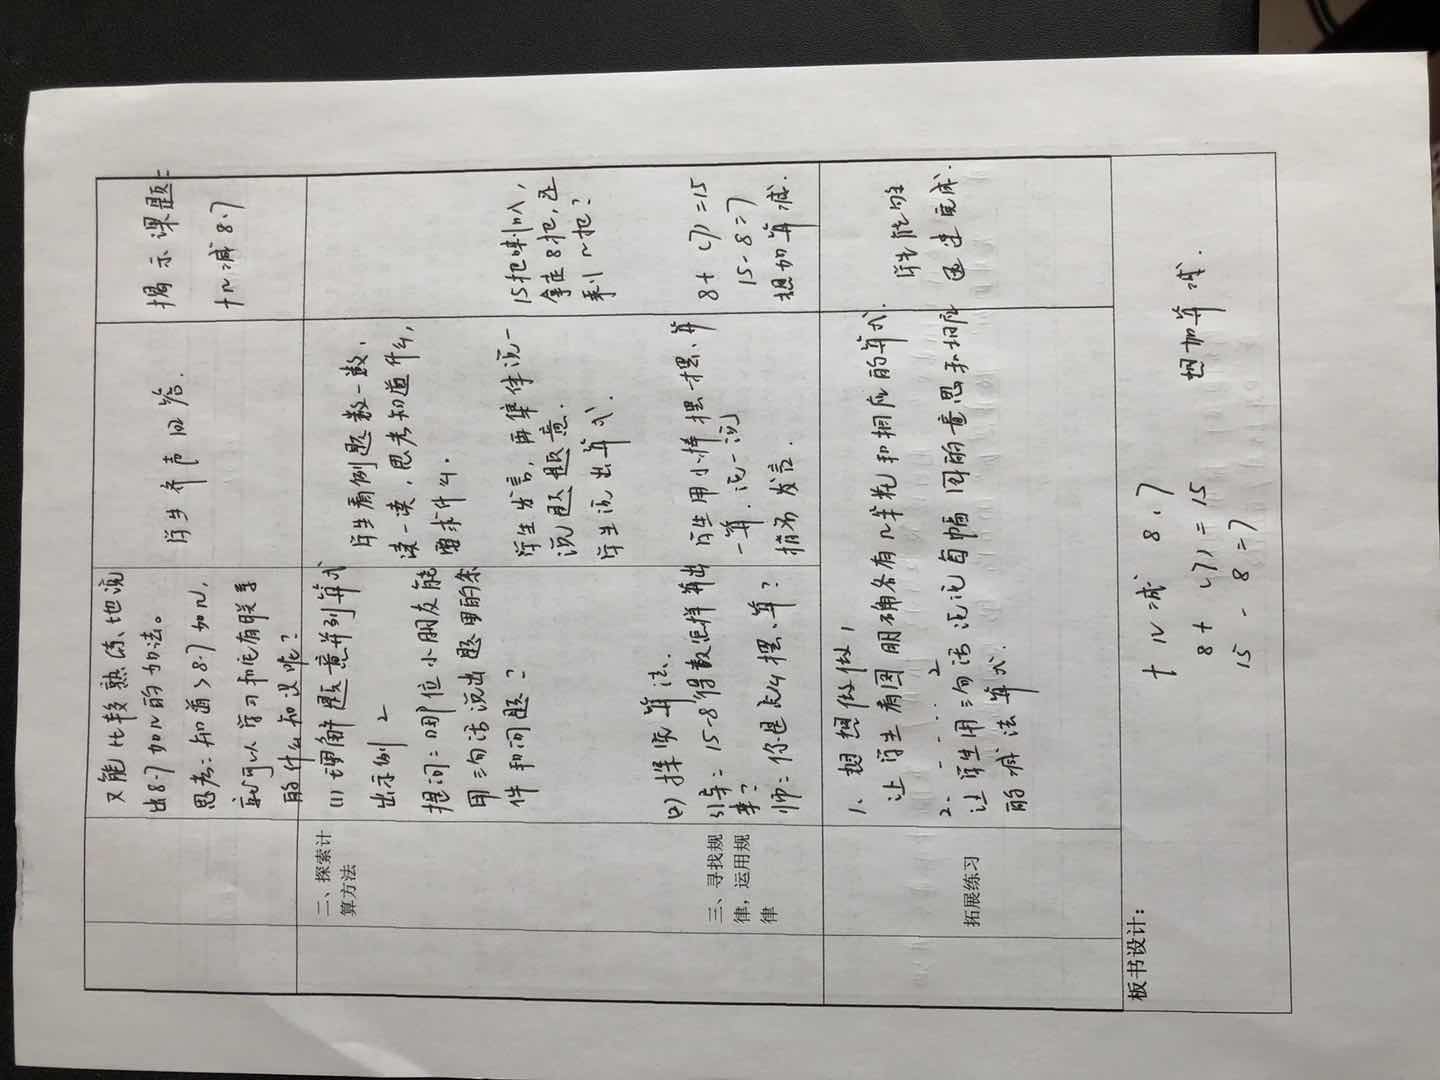 又能比较熟练地说
出8.7加几的加法。
思考:知道了8.7加几,
就可以学习和它有联系
的什么知识呢?
学生齐声回答.
揭示课题:
十几减8.7
二、探索计
算方法
(1)理解题意并列算式
出示例2
提问:哪位小朋友能
用三句话说出题里的条
件和问题?
学生看例题数一数,
读一读,思考知道什么,
要求什么.
学生发言,再集体说一
说题题意.
学生说出算式.
15把喇叭,
拿走8把,还
剩几把?
三、寻找规
律,运用规
律
(2)探究算法.
引导:15-8得数怎样算出
来?
师:你是怎么摆、算?
学生用小棒摆一摆、算
一算.说一说
指名发言.
8+(7)=15
15-8=7
想加算减.
拓展练习
1、想想做做1
让学生看图明确各有几朵花和相应的算式.
2. . . . . 2
让学生用三句话说说每幅图的意思和相应
的减法算式.
学生能够
迅速完成.
板书设计:
十几减8.7
8+(7)=15
15-8=7
想加算减.